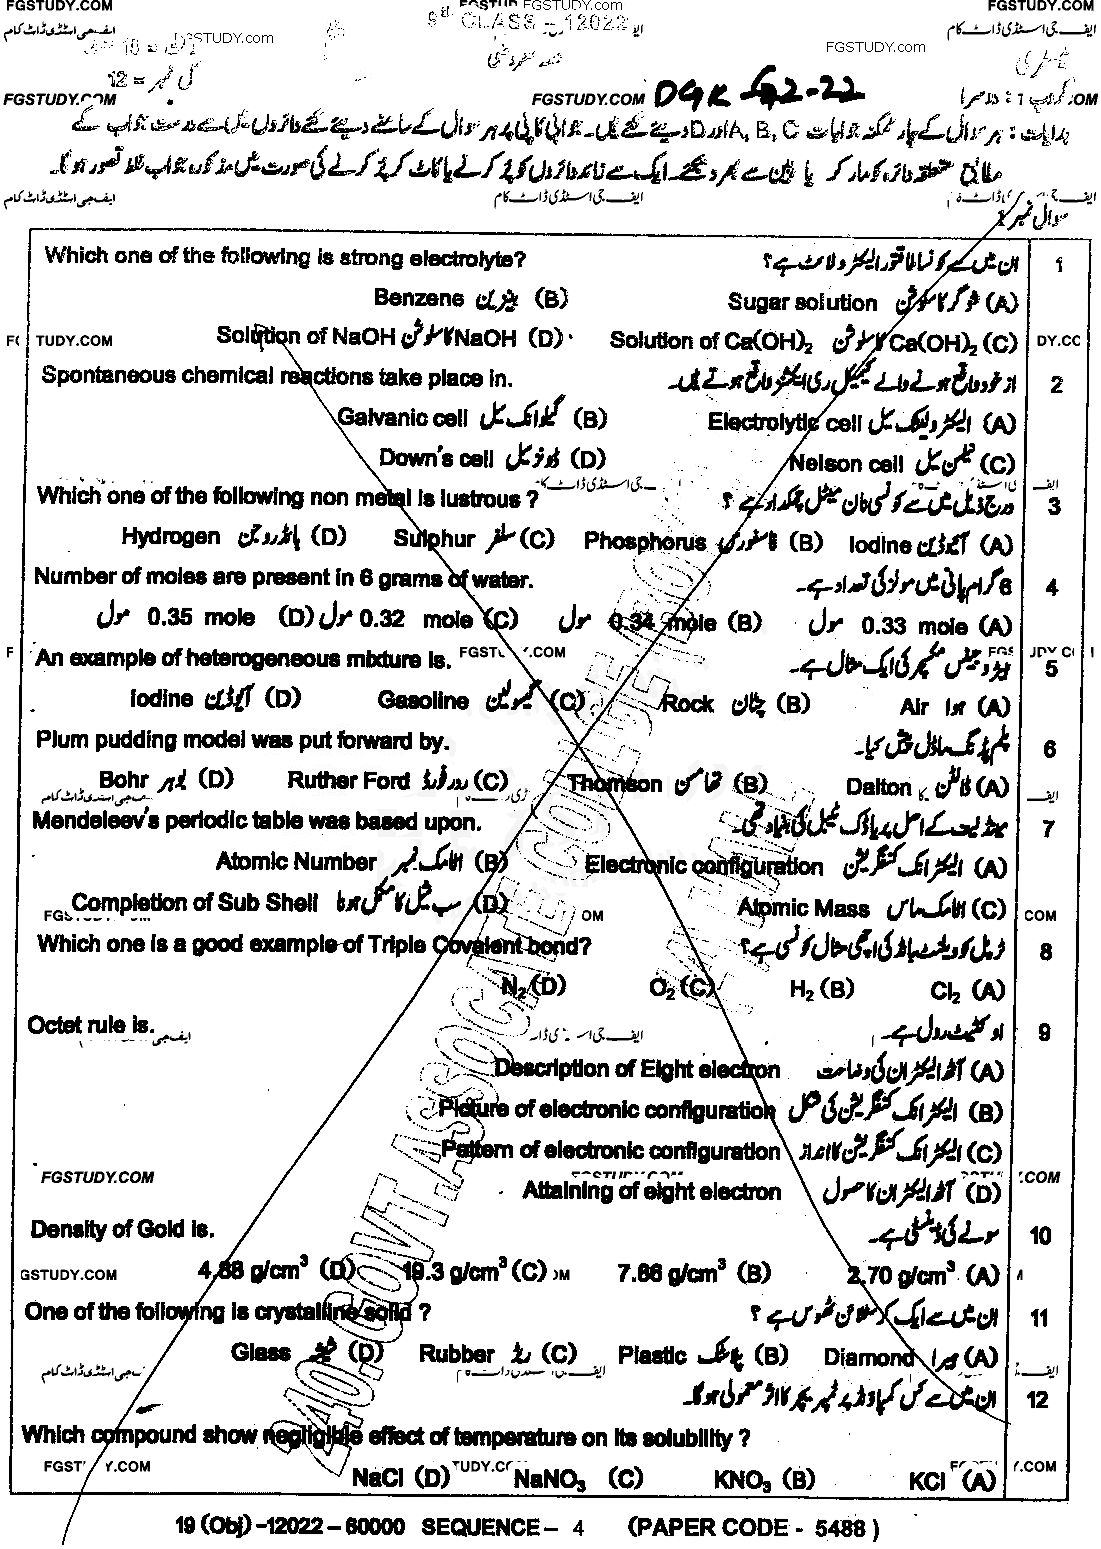 FGSTUDY.COM FGSTUDY.COM FGSTUDY.COM
ایف جی اسٹڈی ڈاٹ کام 9th CLASS – 12022 ایف جی اسٹڈی ڈاٹ کام
FGSTUDY.com FGSTUDY.com
کل نمبر = 12
FGSTUDY.COM FGSTUDY.COM DGK G2-22
ہدایات : ہر سوال کے چار ممکنہ جوابات A, B, C اور D دیئے گئے ہیں۔ جوابی کاپی پر ہر سوال کے سامنے دیئے گئے دائروں میں سے درست جواب کے
مطابق متعلقہ دائرہ کو مارکر یا پین سے بھر دیجئے۔ ایک سے زائد دائروں کو پُر کرنے یا کاٹ کر پُر کرنے کی صورت میں مذکورہ جواب غلط تصور ہو گا۔
ایف جی اسٹڈی ڈاٹ کام ایف جی اسٹڈی ڈاٹ کام
سوال نمبر 1
Which one of the following is strong electrolyte? ان میں سے کونسا طاقتور الیکٹرولائٹ ہے؟ 1
Benzene بینزین (B) Sugar solution شوگر کا سلوشن (A)
Solution of NaOH کا سلوشن NaOH (D) Solution of Ca(OH)₂ کا سلوشن Ca(OH)₂ (C)
Spontaneous chemical reactions take place in. از خود واقع ہونے والے کیمیکل ری ایکشنز واقع ہوتے ہیں۔ 2
Galvanic cell گیلوانک سیل (B) Electrolytic cell الیکٹرولیٹک سیل (A)
Down's cell ڈاؤنز سیل (D) Nelson cell نیلسن سیل (C)
Which one of the following non metal is lustrous ? درج ذیل میں سے کونسی نان میٹل چمکدار ہے ؟ 3
Hydrogen ہائڈروجن (D) Sulphur سلفر (C) Phosphorus فاسفورس (B) Iodine آئیوڈین (A)
Number of moles are present in 6 grams of water. 6 گرام پانی میں مولز کی تعداد ہے۔ 4
مول 0.35 mole (D) مول 0.32 mole (C) مول 0.34 mole (B) مول 0.33 mole (A)
An example of heterogeneous mixture is. FGSTUDY.COM ہیٹروجینس مکسچر کی ایک مثال ہے۔ 5
Iodine آئیوڈین (D) Gasoline گیسولین (C) Rock چٹان (B) Air ہوا (A)
Plum pudding model was put forward by. پلم پڈنگ ماڈل پیش کیا۔ 6
Bohr بوہر (D) Ruther Ford ردرفورڈ (C) Thomson تھامسن (B) Dalton ڈالٹن (A)
Mendeleev's periodic table was based upon. مینڈلیف کے اصل پریاڈک ٹیبل کی بنیاد تھی۔ 7
Atomic Number اٹامک نمبر (B) Electronic configuration الیکٹرانک کنفگریشن (A)
Completion of Sub Shell سب شیل کا مکمل ہونا (D) Atomic Mass اٹامک ماس (C)
Which one is a good example of Triple Covalent bond? ٹرپل کوویلنٹ بانڈ کی اچھی مثال کونسی ہے؟ 8
N₂ (D) O₂ (C) H₂ (B) Cl₂ (A)
Octet rule is. اوکٹیٹ رول ہے۔ 9
Description of Eight electron آٹھ الیکٹران کی وضاحت (A)
Picture of electronic configuration الیکٹرانک کنفگریشن کی شکل (B)
Pattern of electronic configuration الیکٹرانک کنفگریشن کا انداز (C)
FGSTUDY.COM
Attaining of eight electron آٹھ الیکٹران کا حصول (D)
Density of Gold is. سونے کی ڈینسٹی ہے۔ 10
4.88 g/cm³ (D) 19.3 g/cm³ (C) 7.86 g/cm³ (B) 2.70 g/cm³ (A)
One of the following is crystalline solid ? ان میں سے ایک کرسٹلائن ٹھوس ہے ؟ 11
Glass شیشہ (D) Rubber ربڑ (C) Plastic پلاسٹک (B) Diamond ہیرا (A)
ان میں سے کس کمپاؤنڈ پر ٹمپریچر کا اثر معمولی ہو گا۔ 12
Which compound show negligible effect of temperature on its solubility ?
NaCl (D) NaNO₃ (C) KNO₃ (B) KCl (A)
240.GOVT.ASSOCIATE COLLEGE
19 (Obj) -12022 – 60000 SEQUENCE – 4 (PAPER CODE - 5488 )